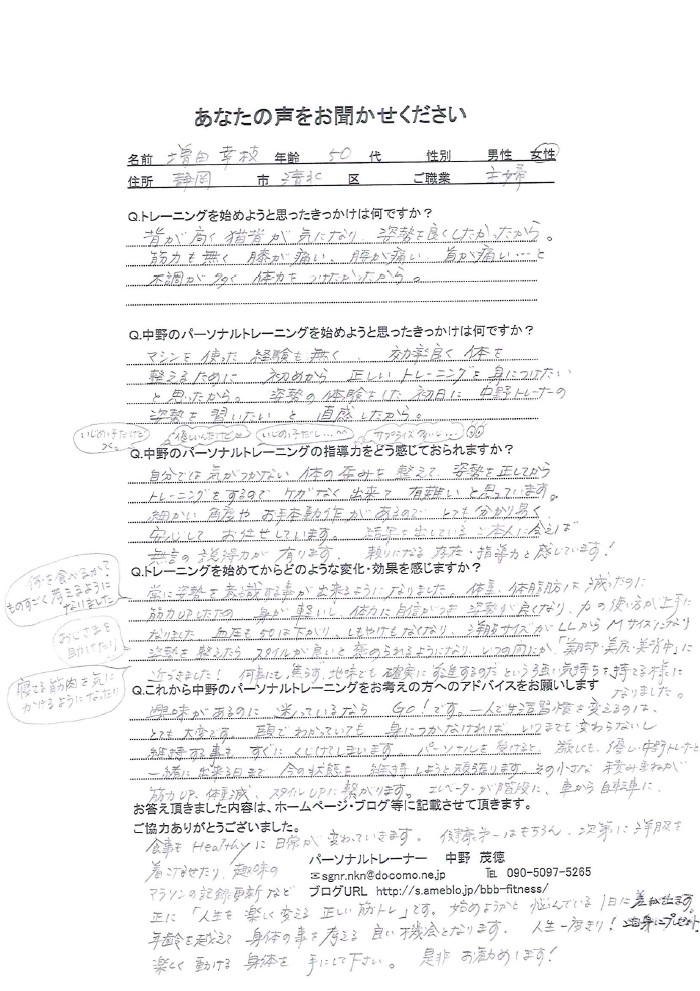 あなたの声をお聞かせください
名前 増田 幸枝 年齢 50 代 性別 男性 女性
住所 静岡 市 清水 区 ご職業 主婦
Q.トレーニングを始めようと思ったきっかけは何ですか？
背が高く猫背が気になり 姿勢を良くしたかったから。
筋力も無く 膝が痛い、腰が痛い 首が痛い…と
不調が多く 体力をつけたかったから。
Q.中野のパーソナルトレーニングを始めようと思ったきっかけは何ですか？
マシンを使った経験も無く 効率良く体を
整えるために 初めから正しいトレーニングを身につけたい
と思ったから。 姿勢の体験をした初日に 中野トレーナーの
姿勢を習いたいと直感したから。
優しいんだけど…
サプライズ多い…
Q.中野のパーソナルトレーニングの指導力をどう感じておられますか？
自分では気がつかない体の歪みを整えて、姿勢を正してから
トレーニングをするのでケガなく出来て有難いと思っています。
細かい角度やお手本動作があるのでとても分かり易く
安心してお任せしています。 結果を出しているご本人に会えば
無言の説得力が有ります。 頼りになる存在・指導力と感じています！
Q.トレーニングを始めてからどのような変化・効果を感じますか？
何を食べるかで
ものすごく考えるように
なりました
おじさまを
助けたり
寝てる筋肉を気に
かけるようになったり
常に姿勢を意識する事が出来るようになりました。体重、体脂肪は減ったのに
筋力UPしたため 身が軽いし、体力に自信がつき 姿勢が良くなり、力の使い方が上手に
なりました。血圧も50は下がり、しもやけもなくなり、洋服サイズがLLからMサイズになり
姿勢を整えたらスタイルが良いと褒められるようになり、いつの間にか、「美姿勢・美尻・美背中」に
近づきました！ 何事にも焦らず、地味でも確実に前進するのだという強い気持ちを持てる様に
なりました。
Q.これから中野のパーソナルトレーニングをお考えの方へのアドバイスをお願いします
興味があるのに迷っているなら GO！です。一人で生活習慣を変えるのは、
とても大変です。 頭でわかっていても 身につかなければ いつまでも変わらないし
維持する事も すぐにくじけてしまいます。 パーソナルを受けると、厳しくも、優しい中野トレーナーと
一緒に出来る日まで 今の状態を 維持しようと頑張ります。 その小さな積み重ねが
筋力UP、体重減、スタイルUPに繋がります。 エレベーターが階段に、車から自転車に、
お答え頂きました内容は、ホームページ・ブログ等に記載させて頂きます。
ご協力ありがとうございました。
食事もHealthyに日常が変わっていきます。 健康第一はもちろん、次第に洋服を
着こなせたり、趣味の
パーソナルトレーナー 中野 茂徳
✉sgnr.nkn@docomo.ne.jp ℡ 090-5097-5265
マラソンの記録更新など
ブログURL http://s.ameblo/bbb-fitness/
正に「人生を楽しく変える正しい筋トレ」です。 始めようかと悩んでいる1日に差が出ます。
年齢を越えて 身体の事を考える良い機会となります。 人生一度きり！ 自身にプレゼント
楽しく動ける身体を 手にして下さい。 是非お勧めします！